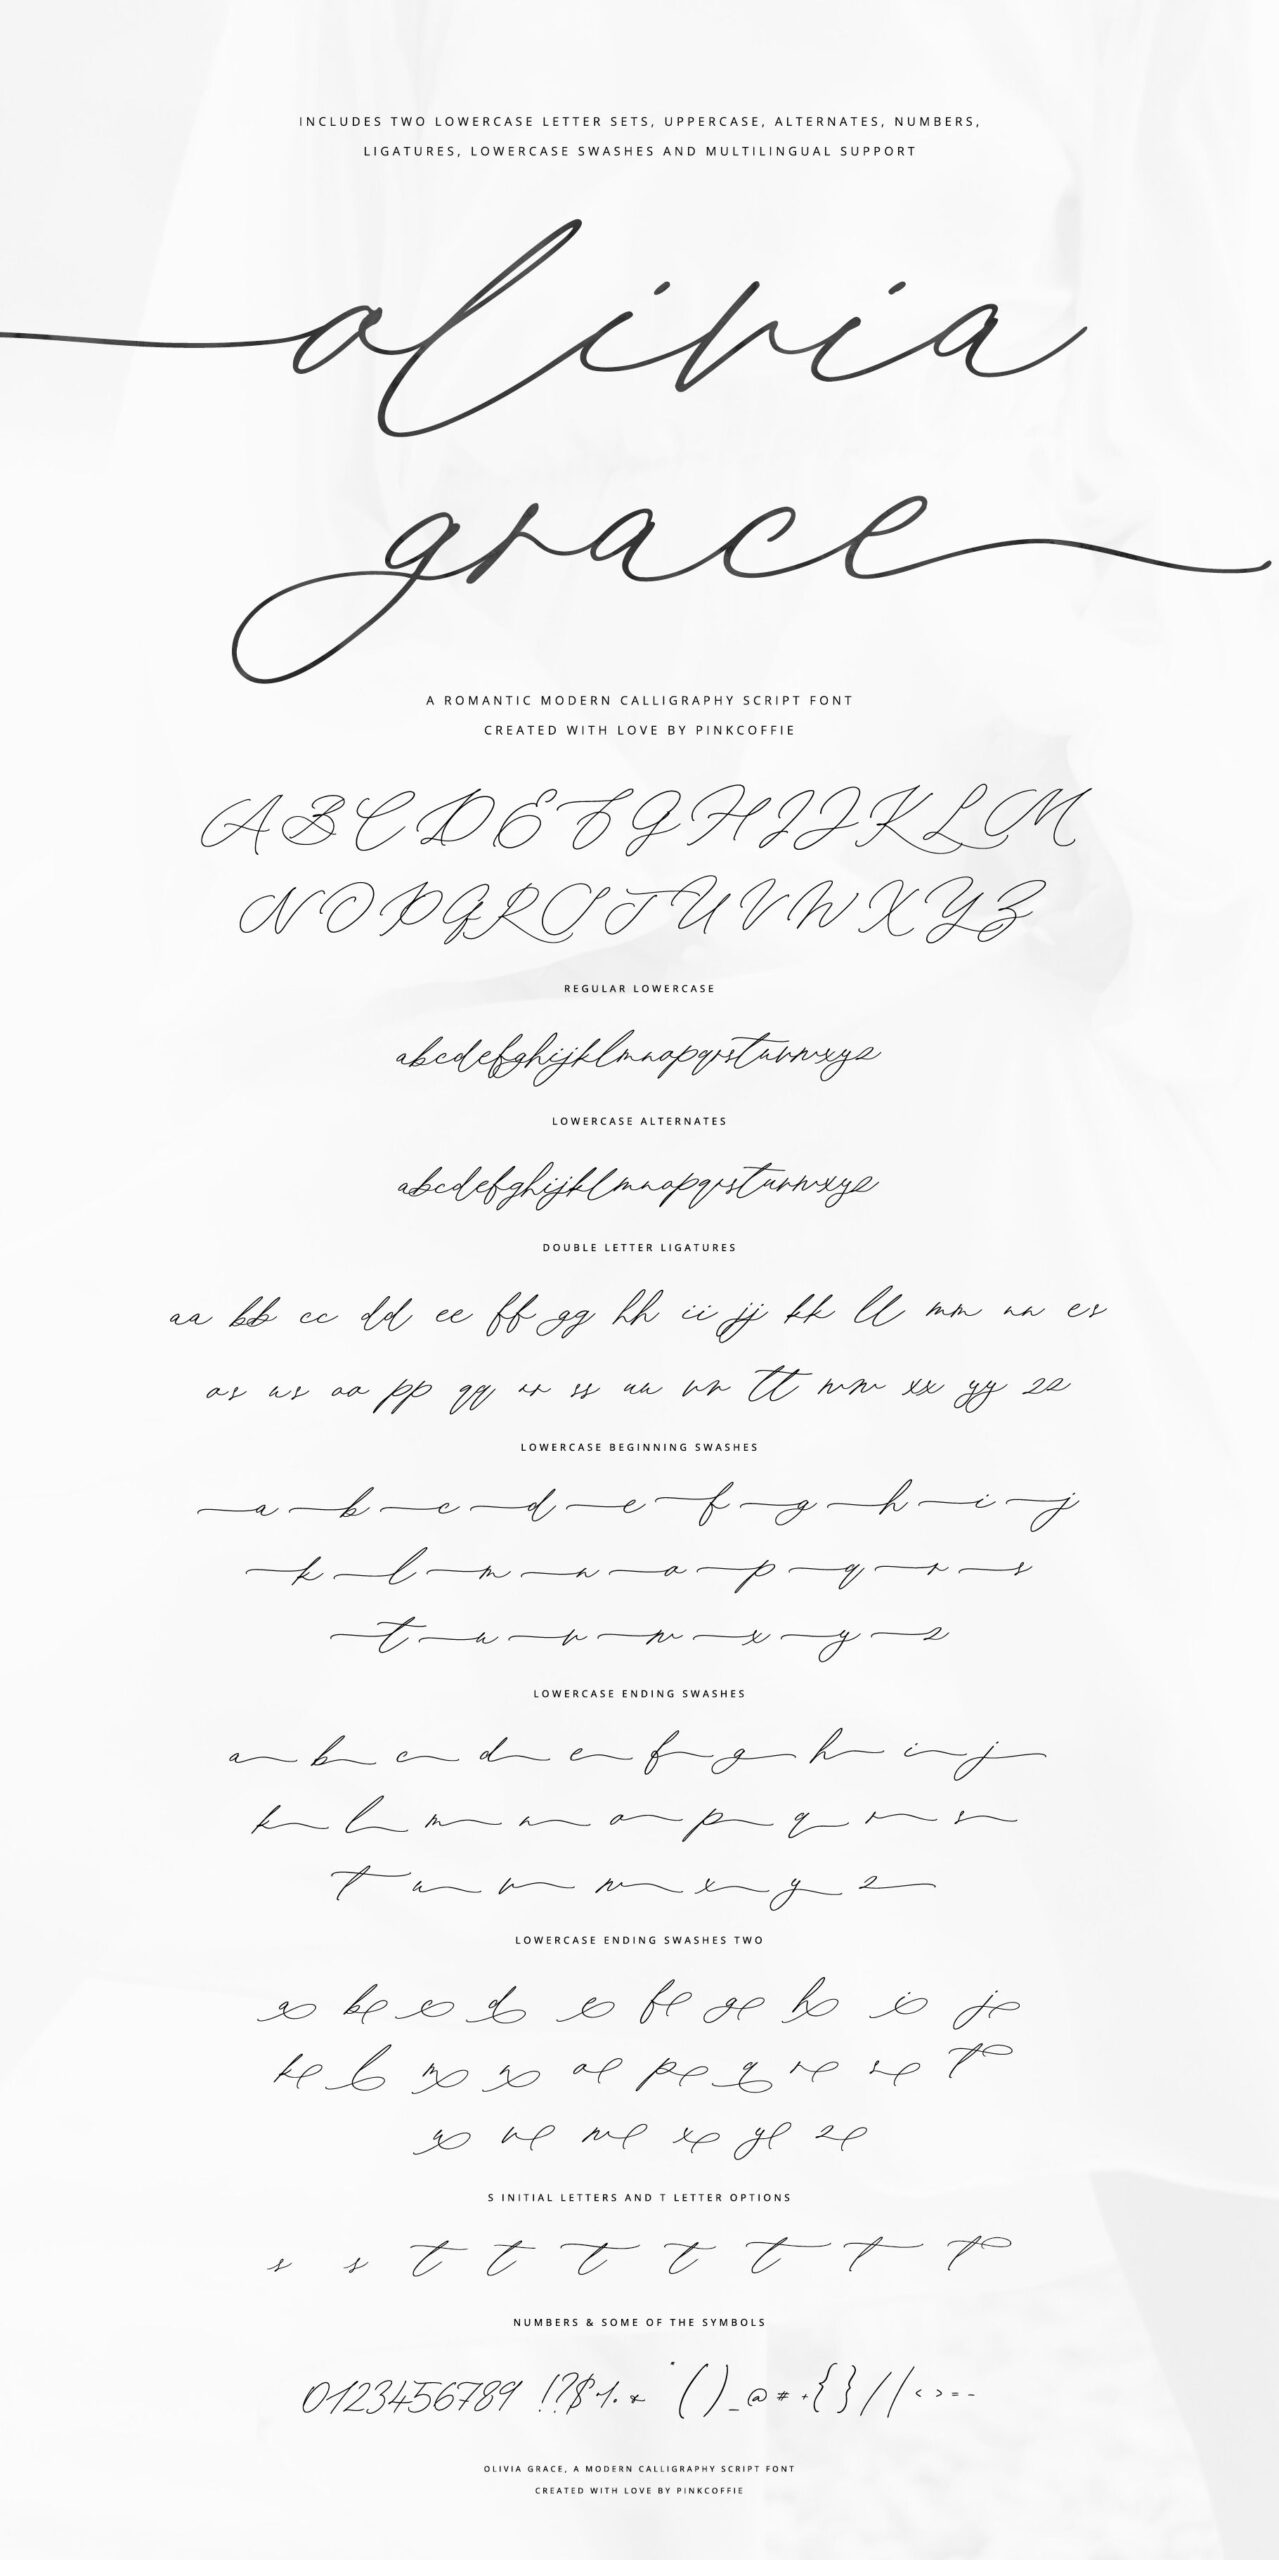 INCLUDES TWO LOWERCASE LETTER SETS, UPPERCASE, ALTERNATES, NUMBERS,
LIGATURES, LOWERCASE SWASHES AND MULTILINGUAL SUPPORT
olivia
grace
A ROMANTIC MODERN CALLIGRAPHY SCRIPT FONT
CREATED WITH LOVE BY PINKCOFFIE
A B C D E F G H I J K L M
N O P Q R S T U V W X Y Z
REGULAR LOWERCASE
abcdefghijklmnopqrstuvwxyz
LOWERCASE ALTERNATES
abcdefghijklmnopqrstuvwxyz
DOUBLE LETTER LIGATURES
aa bb cc dd ee ff gg hh ii jj kk ll mm nn es
os us oo pp qq rr ss uu vv tt ww xx yy zz
LOWERCASE BEGINNING SWASHES
a b c d e f g h i j
k l m n o p q r s
t u v w x y z
LOWERCASE ENDING SWASHES
a b c d e f g h i j
k l m n o p q r s
t u v w x y z
LOWERCASE ENDING SWASHES TWO
a b c d e f g h i j
k l m n o p q r s t
u v w x y z
S INITIAL LETTERS AND T LETTER OPTIONS
s s t t t t t t t
NUMBERS & SOME OF THE SYMBOLS
0123456789 !?$%. * " ( ) _ @ # + { } / / < > = -
OLIVIA GRACE, A MODERN CALLIGRAPHY SCRIPT FONT
CREATED WITH LOVE BY PINKCOFFIE